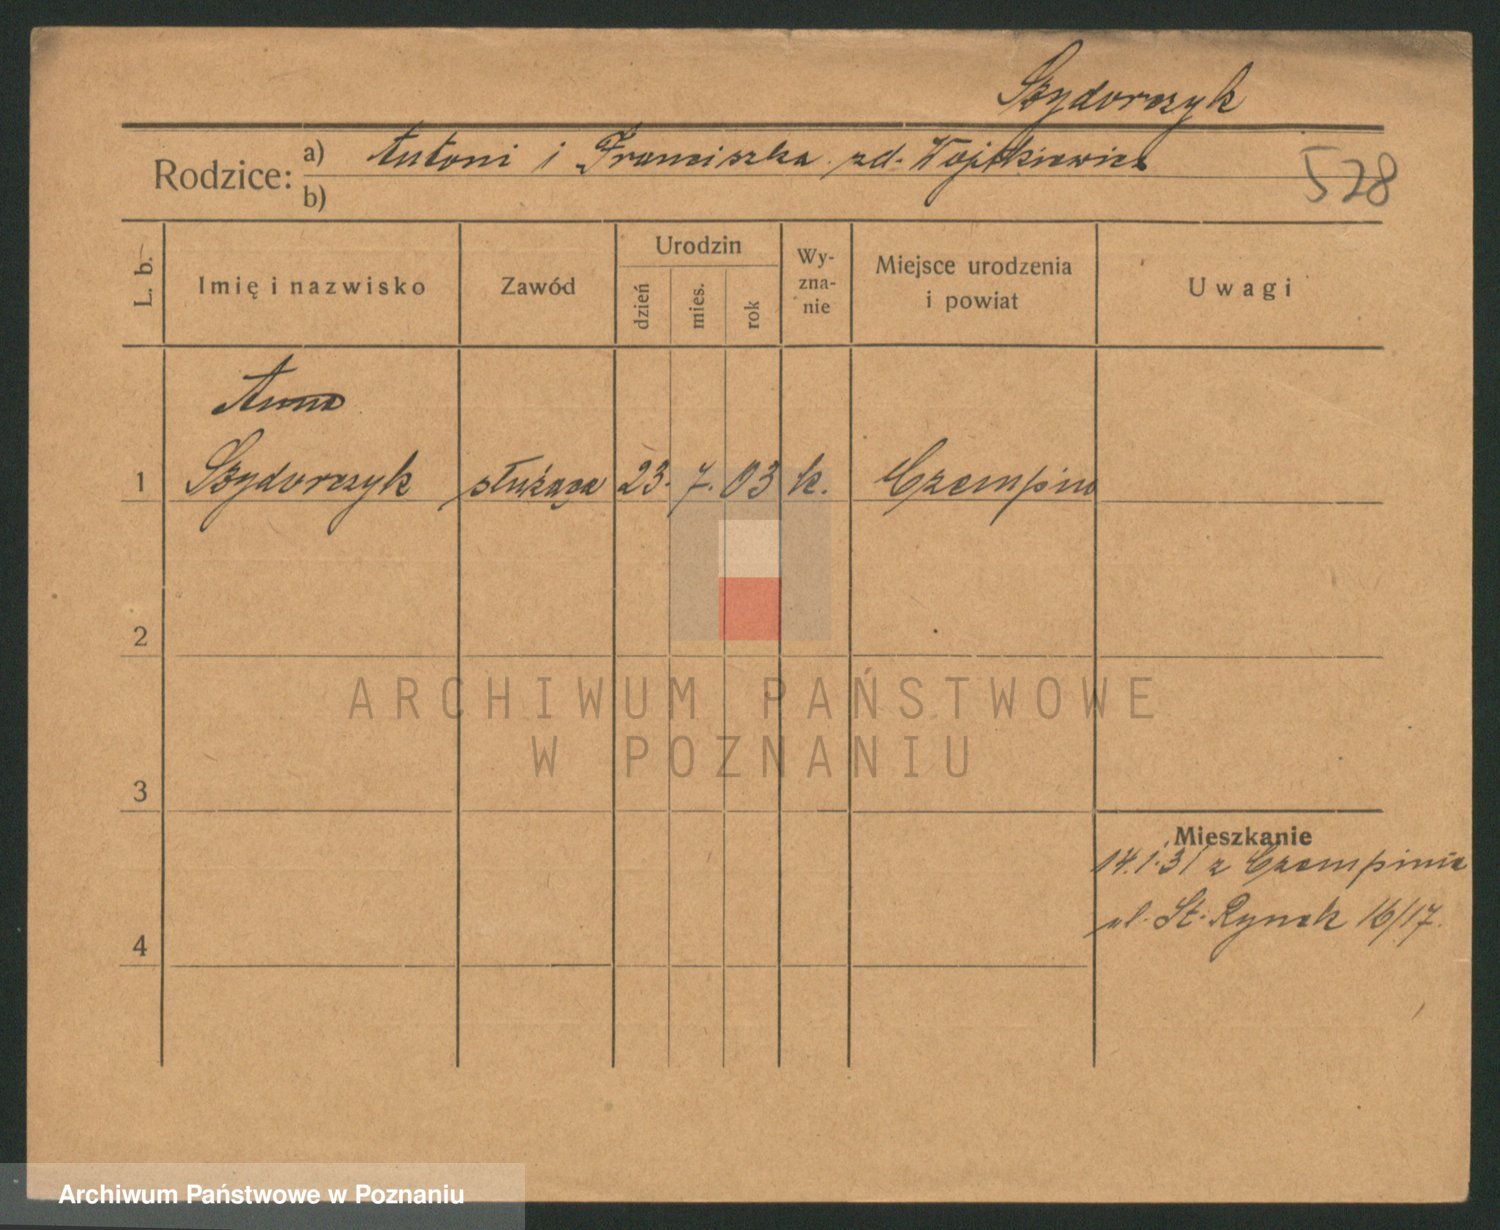 Szydorczyk
Rodzice:
a) Antoni i Franciszka zd. Wojtkiewicz
b)
528
L. b.
Imię i nazwisko
Zawód
Urodzin
dzień
mies.
rok
Wy-
zna-
nie
Miejsce urodzenia
i powiat
Uwagi
Anna
1 Szydorczyk służąca 23. 7. 03 k. Czempin
2
3
4
Mieszkanie
14.1.31 z Czempinia
ul. St. Rynek 16/17.
ARCHIWUM PAŃSTWOWE
W POZNANIU
Archiwum Państwowe w Poznaniu